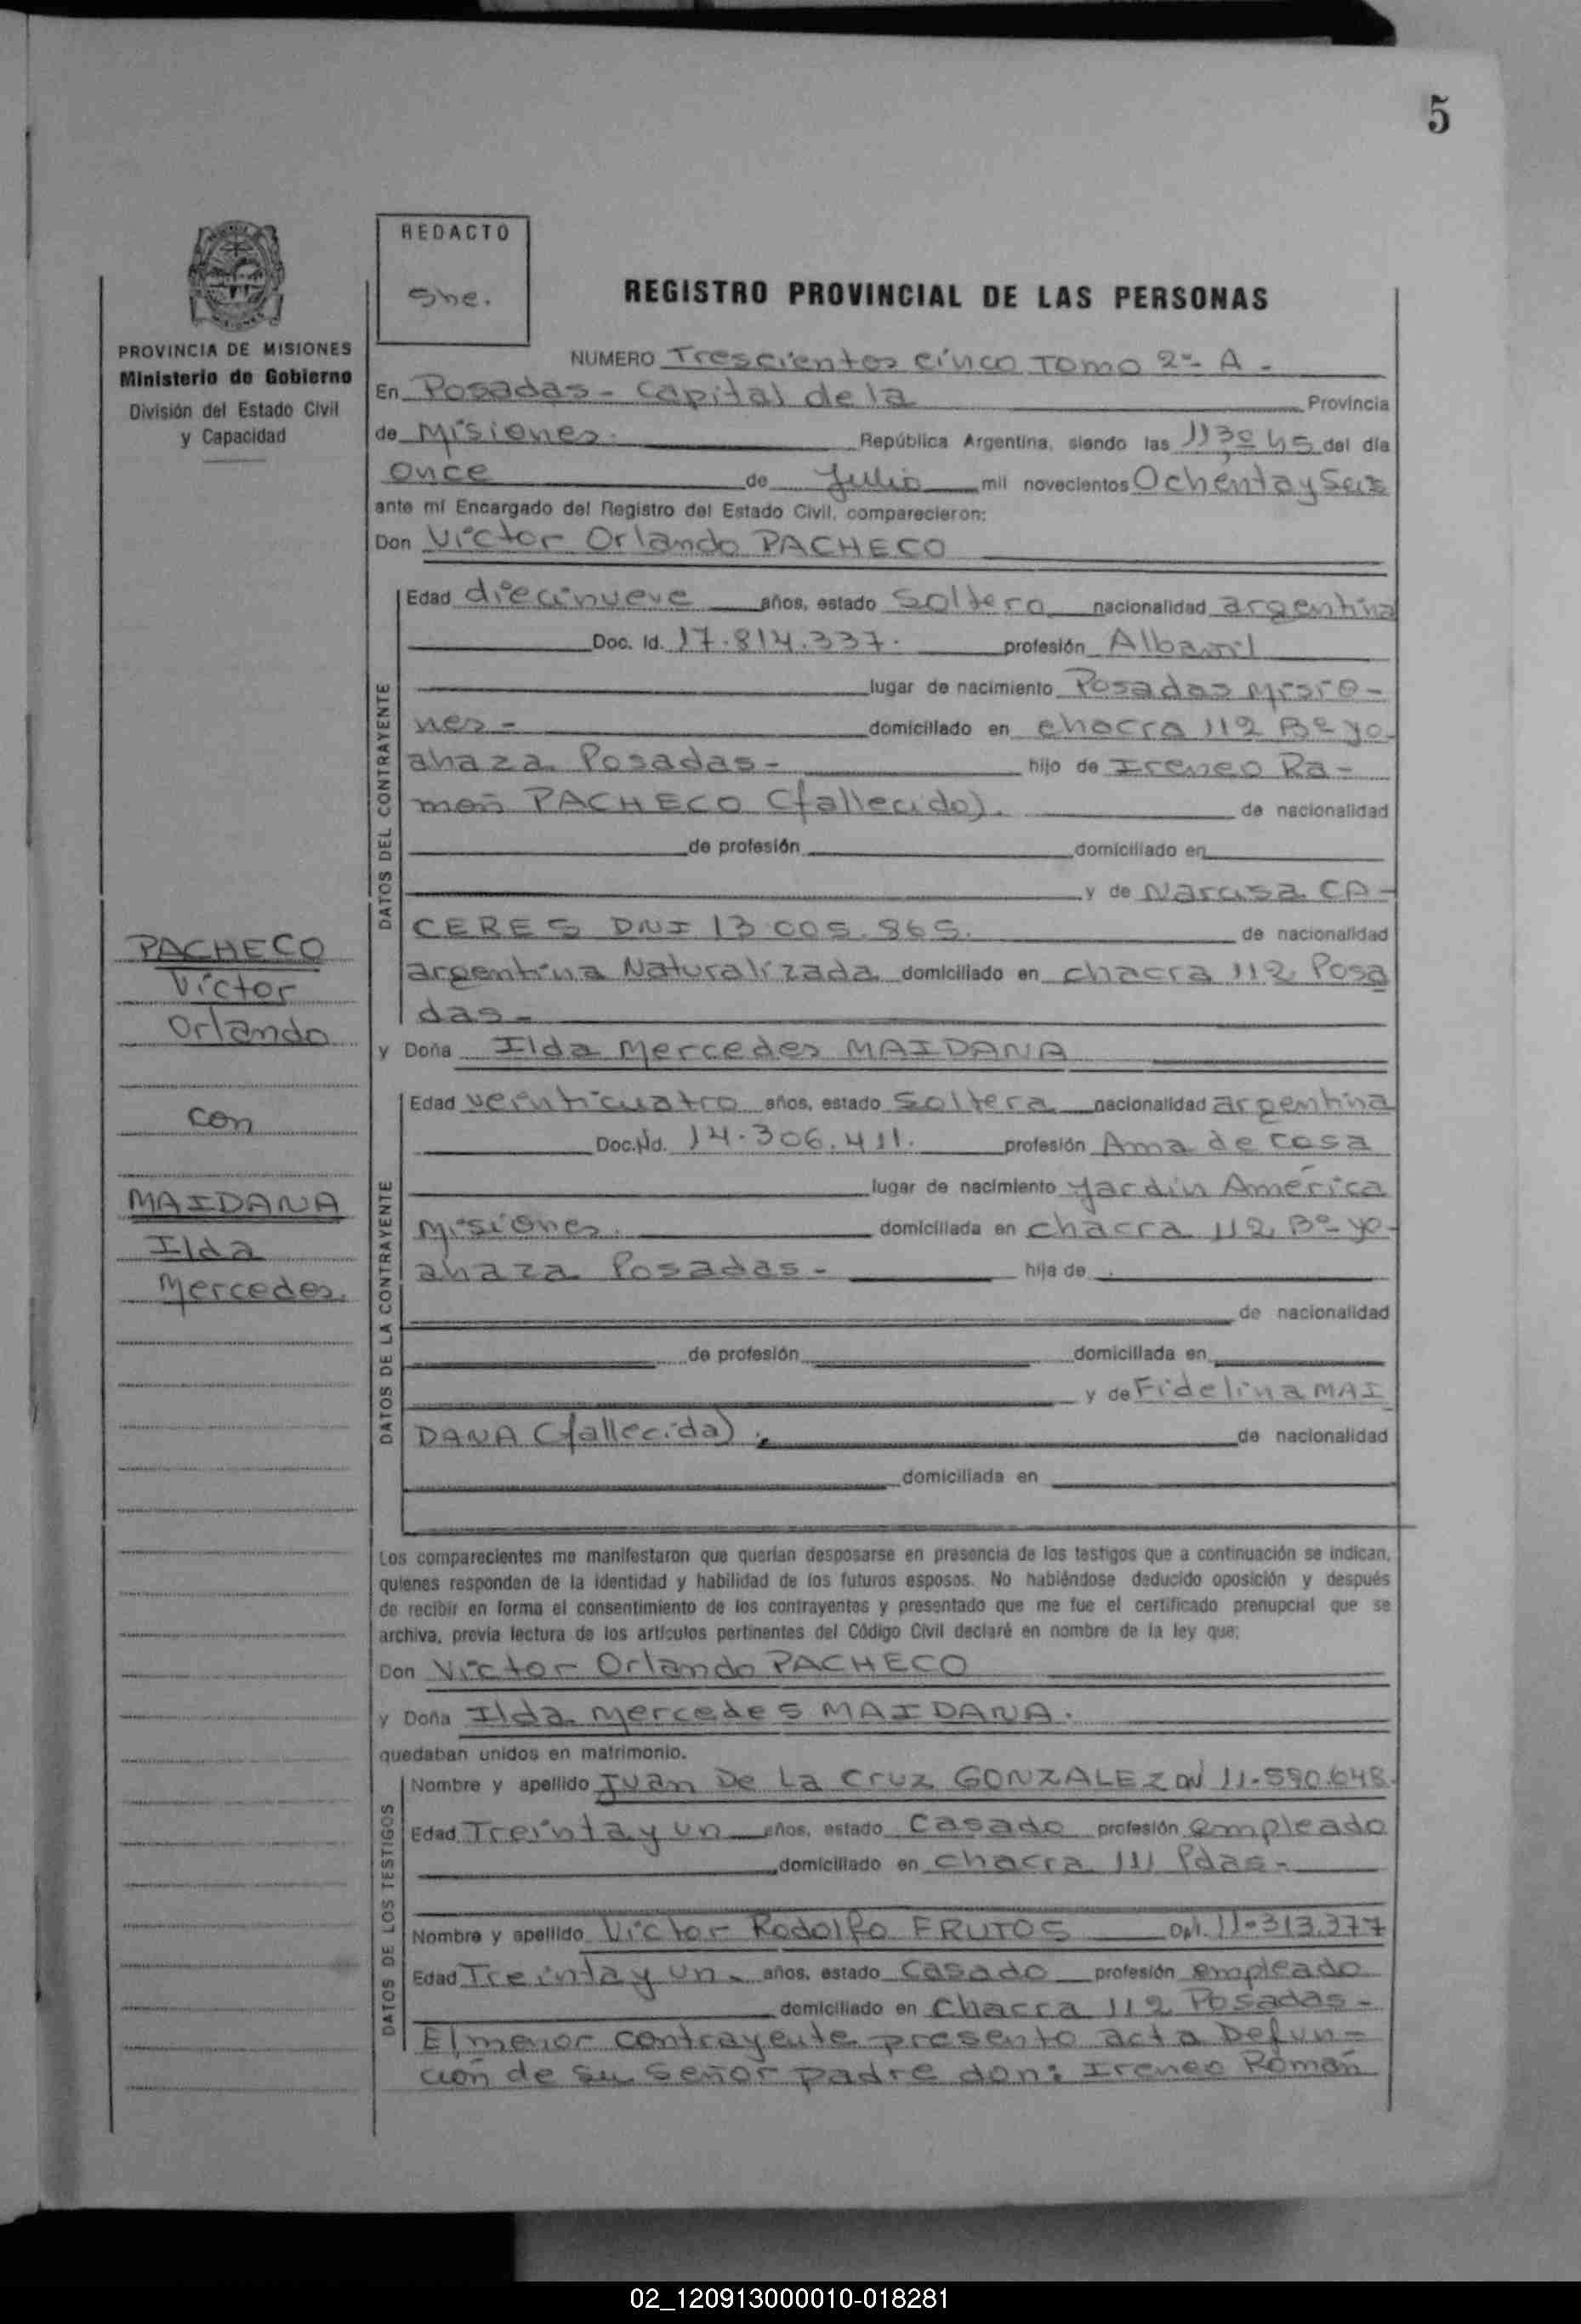 5
REDACTO
She.
PROVINCIA DE MISIONES
Ministerio de Gobierno
División del Estado Civil
y Capacidad
REGISTRO PROVINCIAL DE LAS PERSONAS
NUMERO Trescientos cinco Tomo 2º A -
En Posadas - Capital de la Provincia
de Misiones. República Argentina, siendo las 11,30 hs del día
once de Julio mil novecientos Ochenta y Seis
ante mí Encargado del Registro del Estado Civil, comparecieron:
Don Victor Orlando PACHECO
DATOS DEL CONTRAYENTE
Edad diecinueve años, estado Soltero nacionalidad argentina
Doc. Id. 17.814.337. profesión Albañil
lugar de nacimiento Posadas Misio-
nes - domiciliado en chacra 112 Bº yo-
ahaza Posadas - hijo de Ireneo Ra-
mon PACHECO (fallecido). de nacionalidad
de profesión domiciliado en
y de Narcisa CA-
CERES DNI 13.005.865. de nacionalidad
argentina Naturalizada domiciliado en chacra 112 Posa
das -
PACHECO
Victor
Orlando
con
MAIDANA
Ilda
Mercedes.
y Doña Ilda Mercedes MAIDANA
DATOS DE LA CONTRAYENTE
Edad veinticuatro años, estado Soltera nacionalidad argentina
Doc. Id. 14.306.411. profesión Ama de casa
lugar de nacimiento Jardin América
Misiones. domiciliada en chacra 112 Bº yo-
ahaza Posadas - hija de
de nacionalidad
de profesión domiciliada en
y de Fidelina MAI
DANA (fallecida). de nacionalidad
domiciliada en
Los comparecientes me manifestaron que querían desposarse en presencia de los testigos que a continuación se indican,
quienes responden de la identidad y habilidad de los futuros esposos. No habiéndose deducido oposición y después
de recibir en forma el consentimiento de los contrayentes y presentado que me fue el certificado prenupcial que se
archiva, previa lectura de los artículos pertinentes del Código Civil declaré en nombre de la ley que:
Don Victor Orlando PACHECO
y Doña Ilda Mercedes MAIDANA.
quedaban unidos en matrimonio.
DATOS DE LOS TESTIGOS
Nombre y apellido Juan De La Cruz GONZALEZ DNI 11.590.648.
Edad Treinta y un años, estado Casado profesión empleado
domiciliado en chacra 111 Pdas -
Nombre y apellido Victor Rodolfo FRUTOS DNI. 11.313.377
Edad Treinta y un años, estado Casado profesión empleado
domiciliado en Chacra 112 Posadas -
El menor contrayente presento acta Defun-
ción de su señor padre don: Ireneo Román
02_120913000010-018281